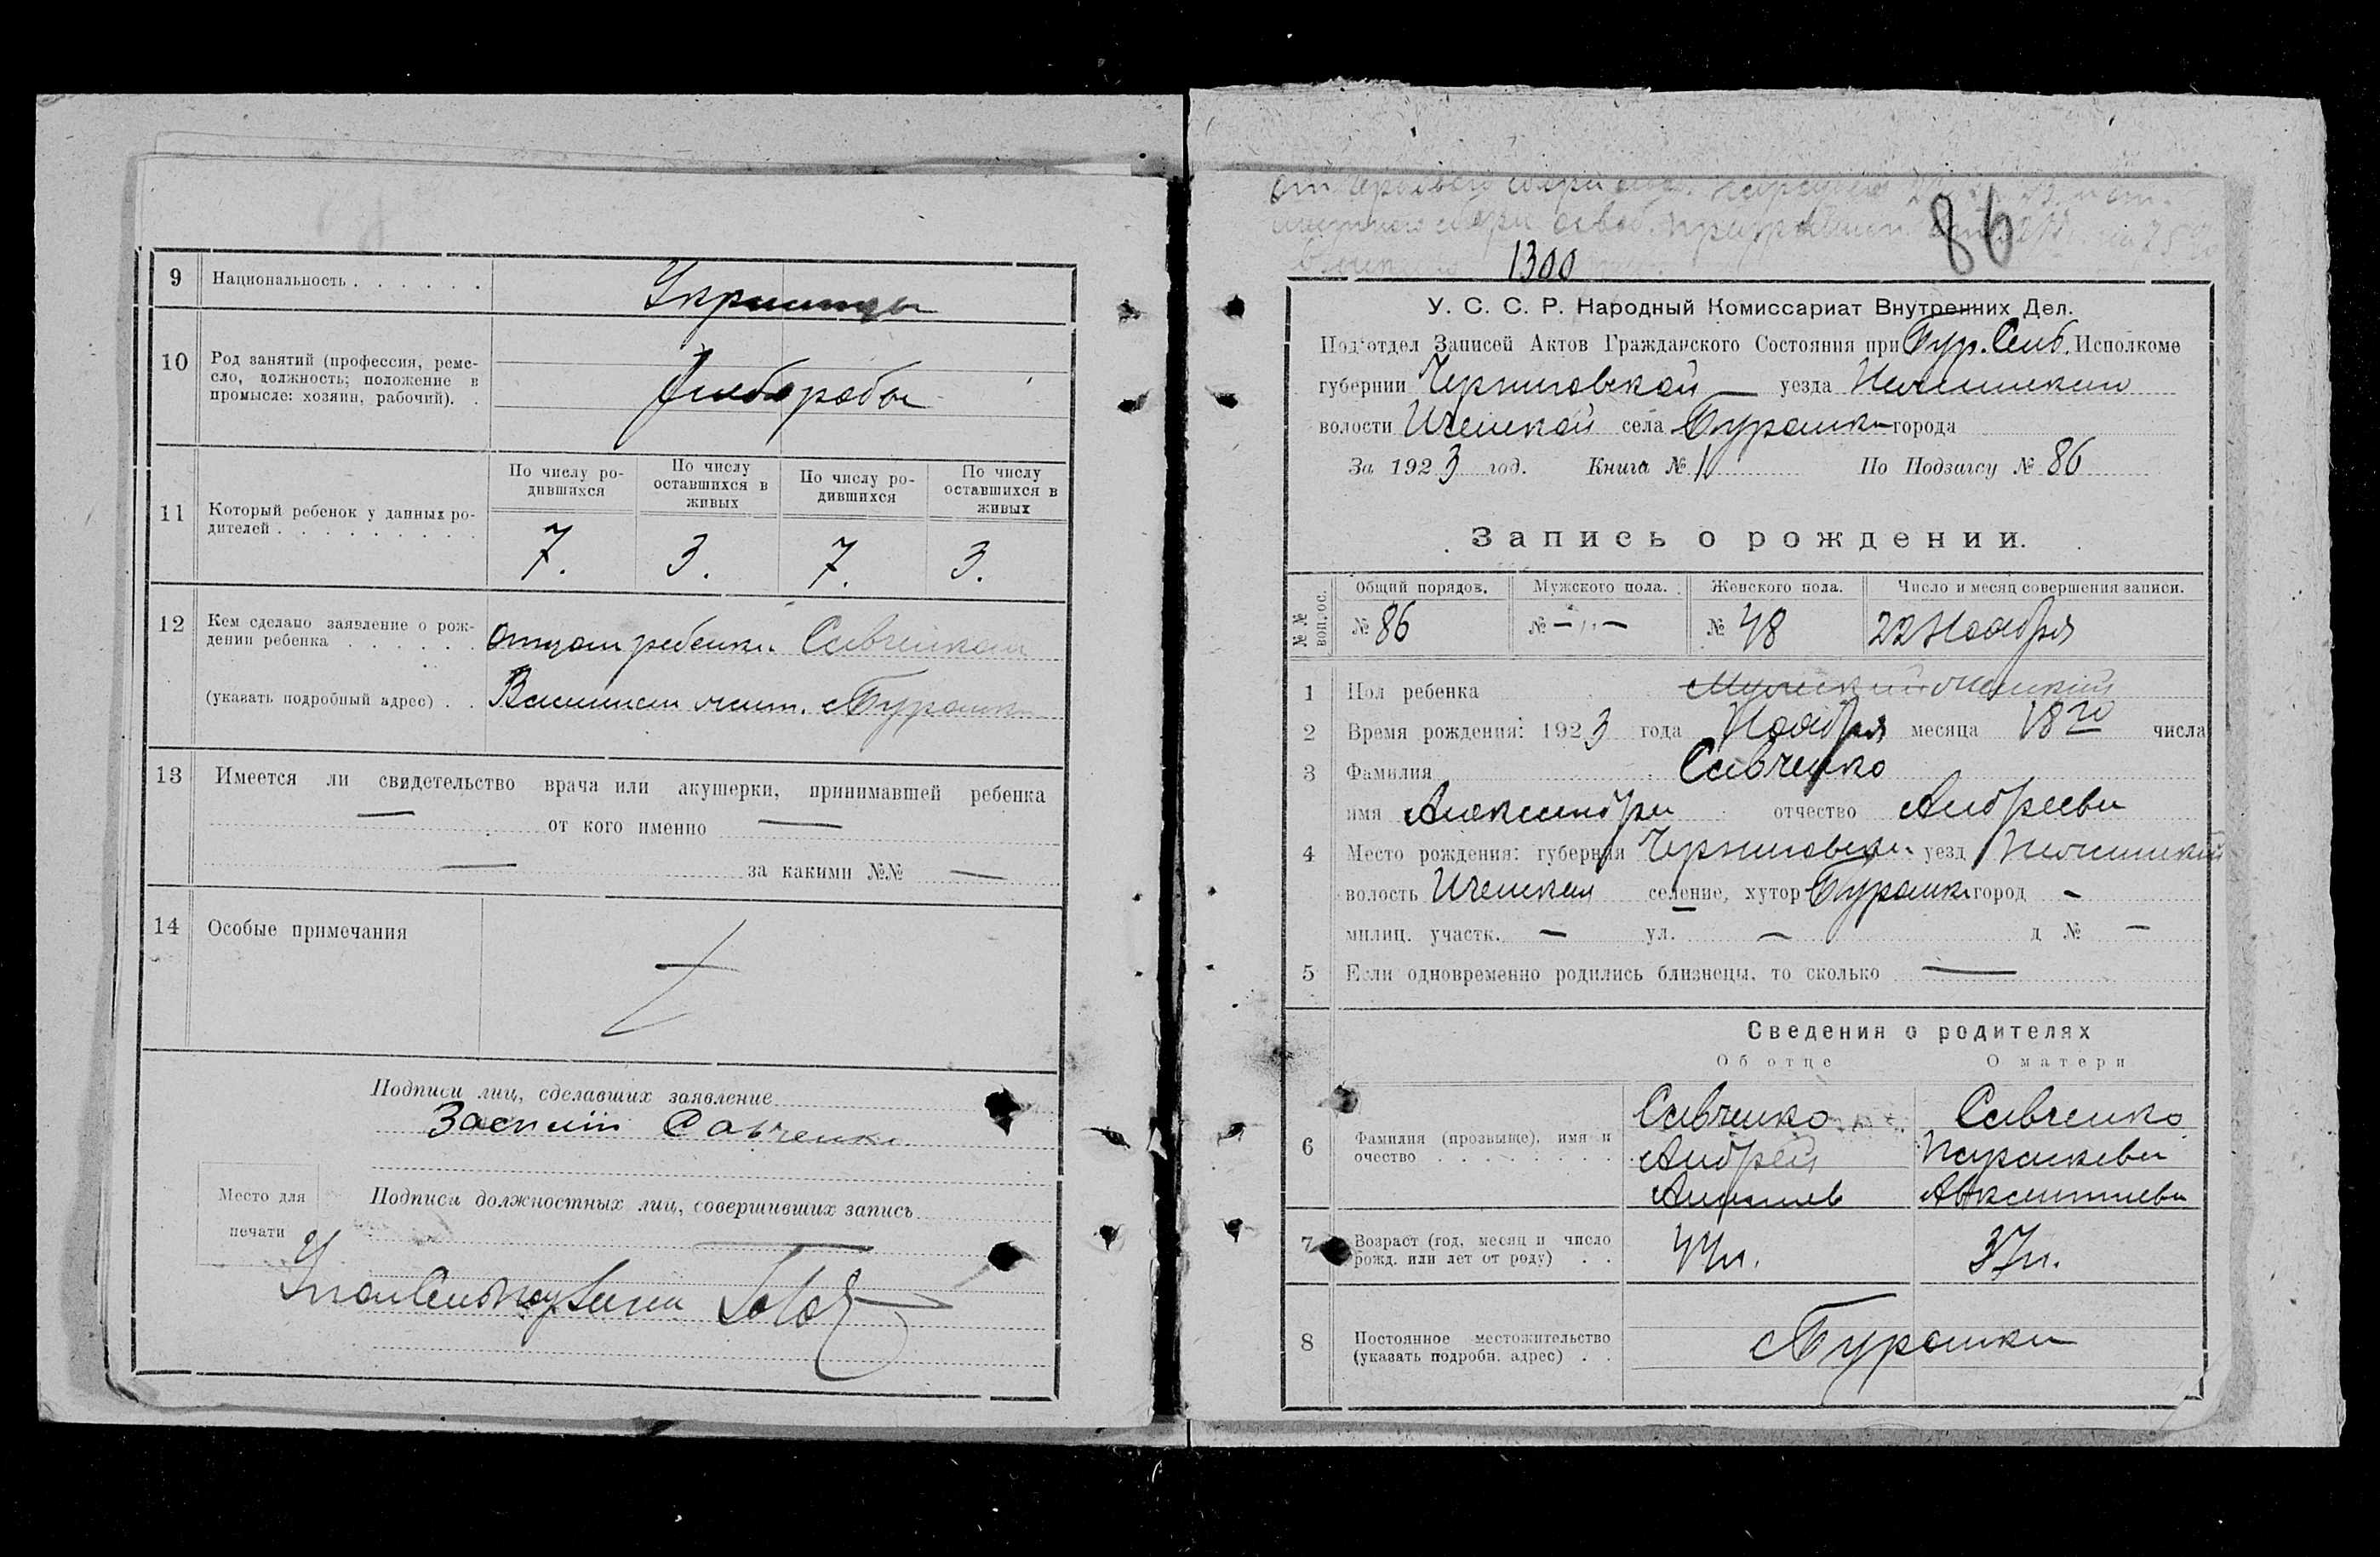 9 Национальность . . . . . .
Украинцы
10 Род занятий (профессия, реме-
сло, должность; положение в
промысле: хозяин, рабочий). .
Хлеборобы
11 Который ребенок у данных ро-
дителей . . . . . . . . . .
По числу ро-
дившихся
По числу
оставшихся в
живых
По числу ро-
дившихся
По числу
оставшихся в
живых
7. 3. 7. 3.
12 Кем сделано заявление о рож-
дении ребенка . . . . . .
отцом ребенка Савченком
(указать подробный адрес) . .
жит. с Буромки
13 Имеется ли свидетельство врача или акушерки, принимавшей ребенка
— от кого именно —
— за какими №№ —
14 Особые примечания
Подписи лиц, сделавших заявление
Савченко
Место для
печати
Подписи должностных лиц, совершивших запись
86
1300
У. С. С. Р. Народный Комиссариат Внутренних Дел.
Под'отдел Записей Актов Гражданского Состояния при Бур. Сель. Исполкоме
губернии Черниговской уезда Нежинского
волости Иченской села Буромки города
За 1923 год. Книга № 1 По Подзагсу № 86
Запись о рождении.
№ № вопрос.
Общий порядок. Мужского пола. Женского пола. Число и месяц совершения записи.
№ 86 № — " — № 48 22 Ноября
1 Пол ребенка Мужский женский
2 Время рождения: 1923 года Ноября месяца 18го числа
3 Фамилия Савченко
имя Александра отчество Андреевна
4 Место рождения: губерния Черниговская уезд Нежинский
волость Иченская селение, хутор Буромка город —
милиц. участк. — ул. — д № —
5 Если одновременно родились близнецы, то сколько —
Сведения о родителях
Об отце О матери
6 Фамилия (прозвыще), имя и
очество . . . . . . . .
Савченко Савченко
Андрей Параскева
Авксентиева
7 Возраст (год, месяц и число
рожд. или лет от роду) . .
44л. 37л.
8 Постоянное местожительство
(указать подробн. адрес) . .
с Буромки